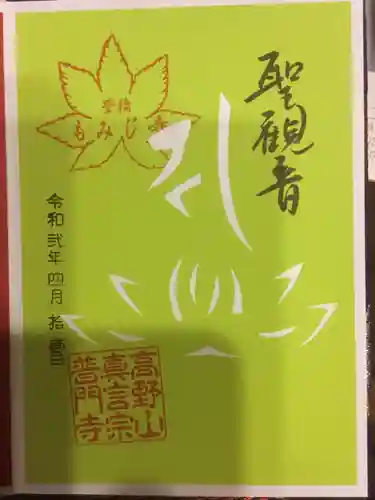 聖觀音
もみじ寺
令和弐年四月拾
高野山
真言宗
普門寺